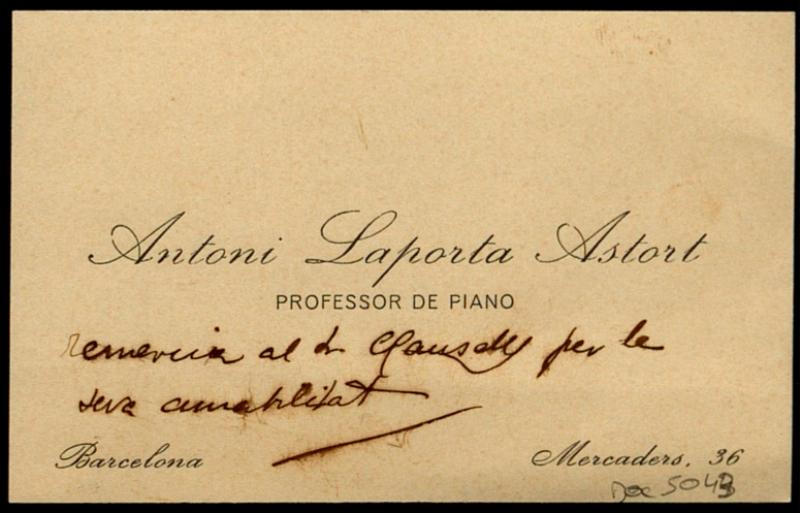 Antoni Laporta Astort
PROFESSOR DE PIANO
remercia al dr Clausells per la
seva amabilitat
Barcelona
Mercaders, 36
Doc 5043